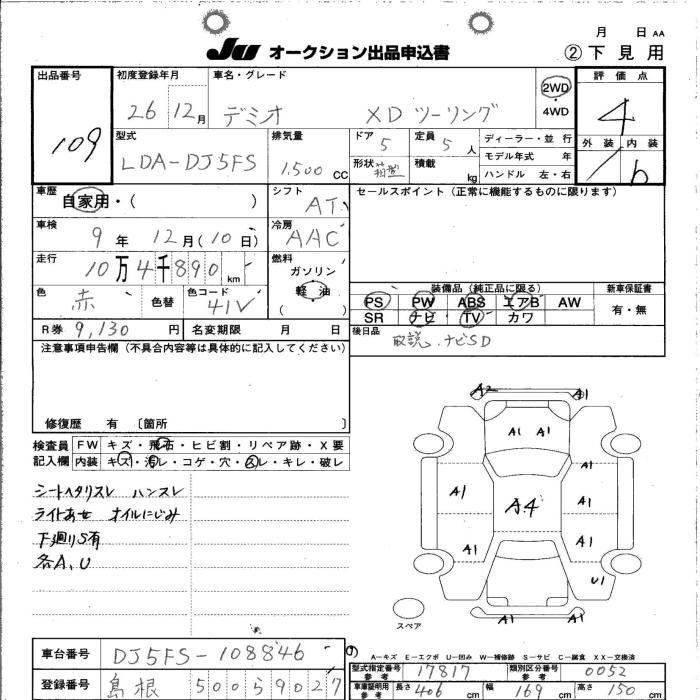 月 日 AA
JU オークション出品申込書
②下見用
出品番号 109
初度登録年月 26 12月
車名・グレード デミオ XDツーリング
2WD
4WD
評価点 4
外装 内装 b
型式 LDA-DJ5FS
排気量 1,500 CC
ドア 5
定員 5人
形状 箱型
積載 kg
ディーラー・並行
モデル年式 年
ハンドル 左・右
車歴 自家用・( )
シフト AT
セールスポイント (正常に機能するものに限ります)
車検 9年 12月(10日)
冷房 AAC
走行 10万4千890km
燃料 ガソリン
軽油
( )
色 赤 色替 色コード 41V
R券 9,130円 名変期限 月 日
装備品(純正品に限る) 新車保証書
PS PW ABS エアB AW 有・無
SR ナビ TV カワ
後日品 取説、ナビSD
注意事項申告欄 (不具合内容等は具体的に記入してください)
修復歴 有 〔箇所 〕
検査員 FW キズ・飛石・ヒビ割・リペア跡・X要
記入欄 内装 キズ・汚レ・コゲ・穴・スレ・キレ・破レ
シートヘタリスレ ハンスレ
ライトあせ オイルにじみ
下廻りS有
各A、U
A2 A1
A1 A1
A1
A1 A4 A1
A1 A1
U1
A1 A1
スペア
A-キズ E-エクボ U-凹み W-補修跡 S-サビ C-腐食 XX-交換済
車台番号 DJ5FS-108846
登録番号 島根 500 59027
型式指定番号 参考 17817 類別区分番号 参考 0052
車庫証明用 参考 長さ 406 cm 幅 169 cm 高さ 150 cm